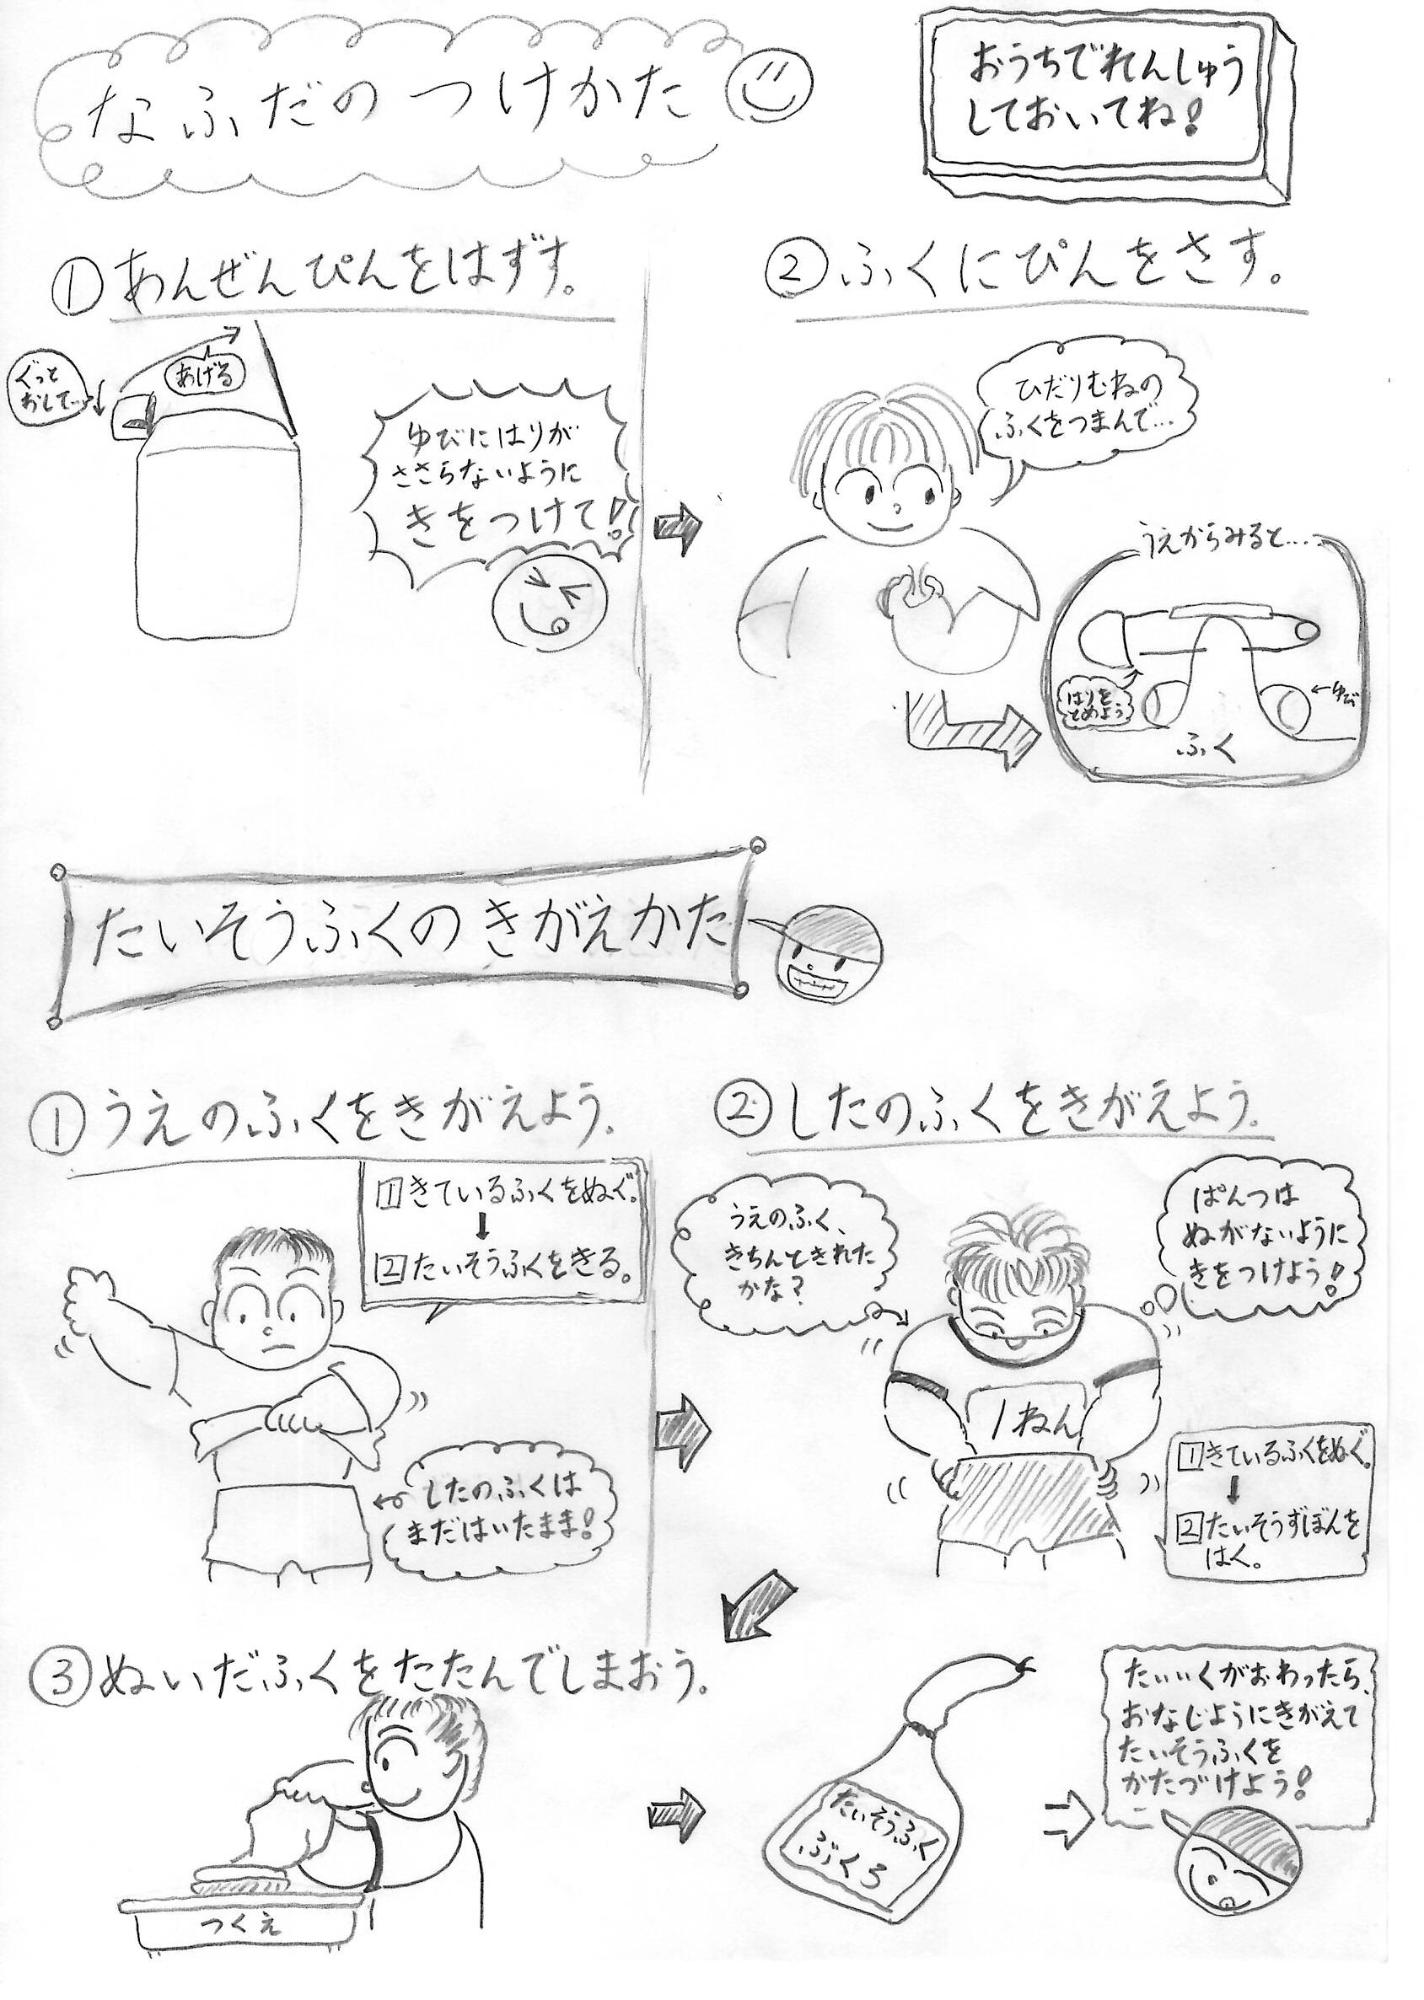 なふだのつけかた
おうちでれんしゅう
しておいてね!
①あんぜんぴんをはずす。
ぐっと
おして…
あげる
ゆびにはりが
ささらないように
きをつけて!
②ふくにぴんをさす。
ひだりむねの
ふくをつまんで…
うえからみると…
はりを
とめよう
ゆび
ふく
たいそうふくのきがえかた
①うえのふくをきがえよう。
1きているふくをぬぐ。
2たいそうふくをきる。
したのふくは
まだはいたまま!
②したのふくをきがえよう。
うえのふく、
きちんときれた
かな?
ぱんつは
ぬがないように
きをつけよう!
1ねん
1きているふくをぬぐ。
2たいそうずぼんを
はく。
③ぬいだふくをたたんでしまおう。
つくえ
たいそうふく
ぶくろ
たいいくがおわったら、
おなじようにきがえて
たいそうふくを
かたづけよう!